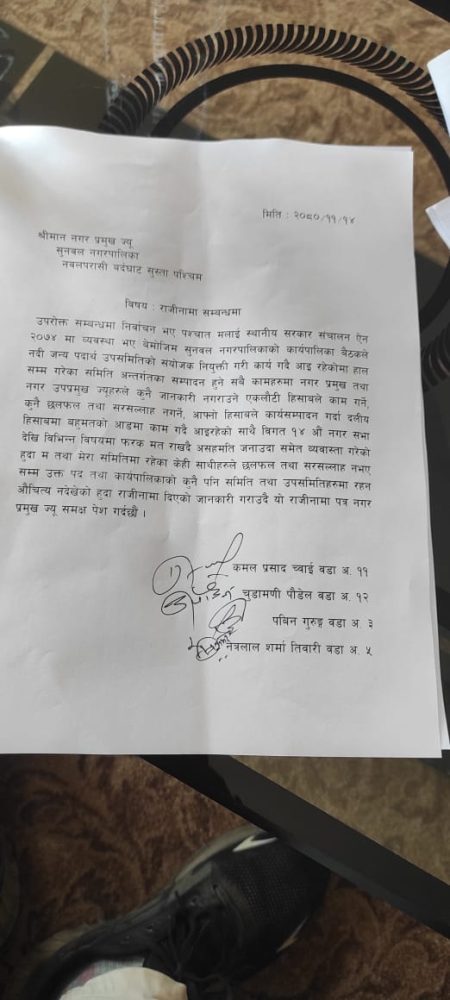 मिति : २०८०/११/१४
श्रीमान नगर प्रमुख ज्यू
सुनवल नगरपालिका
नवलपरासी बर्दघाट सुस्ता पश्चिम
विषय : राजीनामा सम्बन्धमा
उपरोक्त सम्बन्धमा निर्वाचन भए पश्चात मलाई स्थानीय सरकार संचालन ऐन
२०७४ मा व्यवस्था भए बेमोजिम सुनवल नगरपालिकाको कार्यपालिका बैठकले
नदी जन्य पदार्थ उपसमितिको सयोजक नियुक्ती गरी कार्य गदै आइ रहेकोमा हाल
सम्म गरेका समिति अन्तर्गतका सम्पादन हुने सबै कामहरुमा नगर प्रमुख तथा
नगर उपप्रमुख ज्यूहरुले कुनै जानकारी नगराउने एकलौटी हिसाबले काम गर्ने,
कुनै छलफल तथा सरसल्लाह नगर्ने, आफ्नो हिसाबले कार्यसम्पादन गर्दा दलीय
हिसाबमा बहुमतको आडमा काम गदै आइरहेको साथै विगत १४ औ नगर सभा
देखि विभिन्न विषयमा फरक मत राख्दै असहमति जनाउदा समेत व्यवास्ता गरेको
हुदा म तथा मेरा समितिमा रहेका केही साथीहरुले छलफल तथा सरसल्लाह नभए
सम्म उक्त पद तथा कार्यपालिकाको कुनै पनि समिति तथा उपसमितिहरुमा रहन
औचित्य नदेखेको हुदा राजीनामा दिएको जानकारी गराउदै यो राजीनामा पत्र नगर
प्रमुख ज्यू समक्ष पेश गर्दछौ ।
कमल प्रसाद च्वाई वडा अ. ११
चुडामणी पौडेल वडा अ. १२
पबिन गुरुङ्ग वडा अ. ३
नेत्रलाल शर्मा तिवारी वडा अ. ५